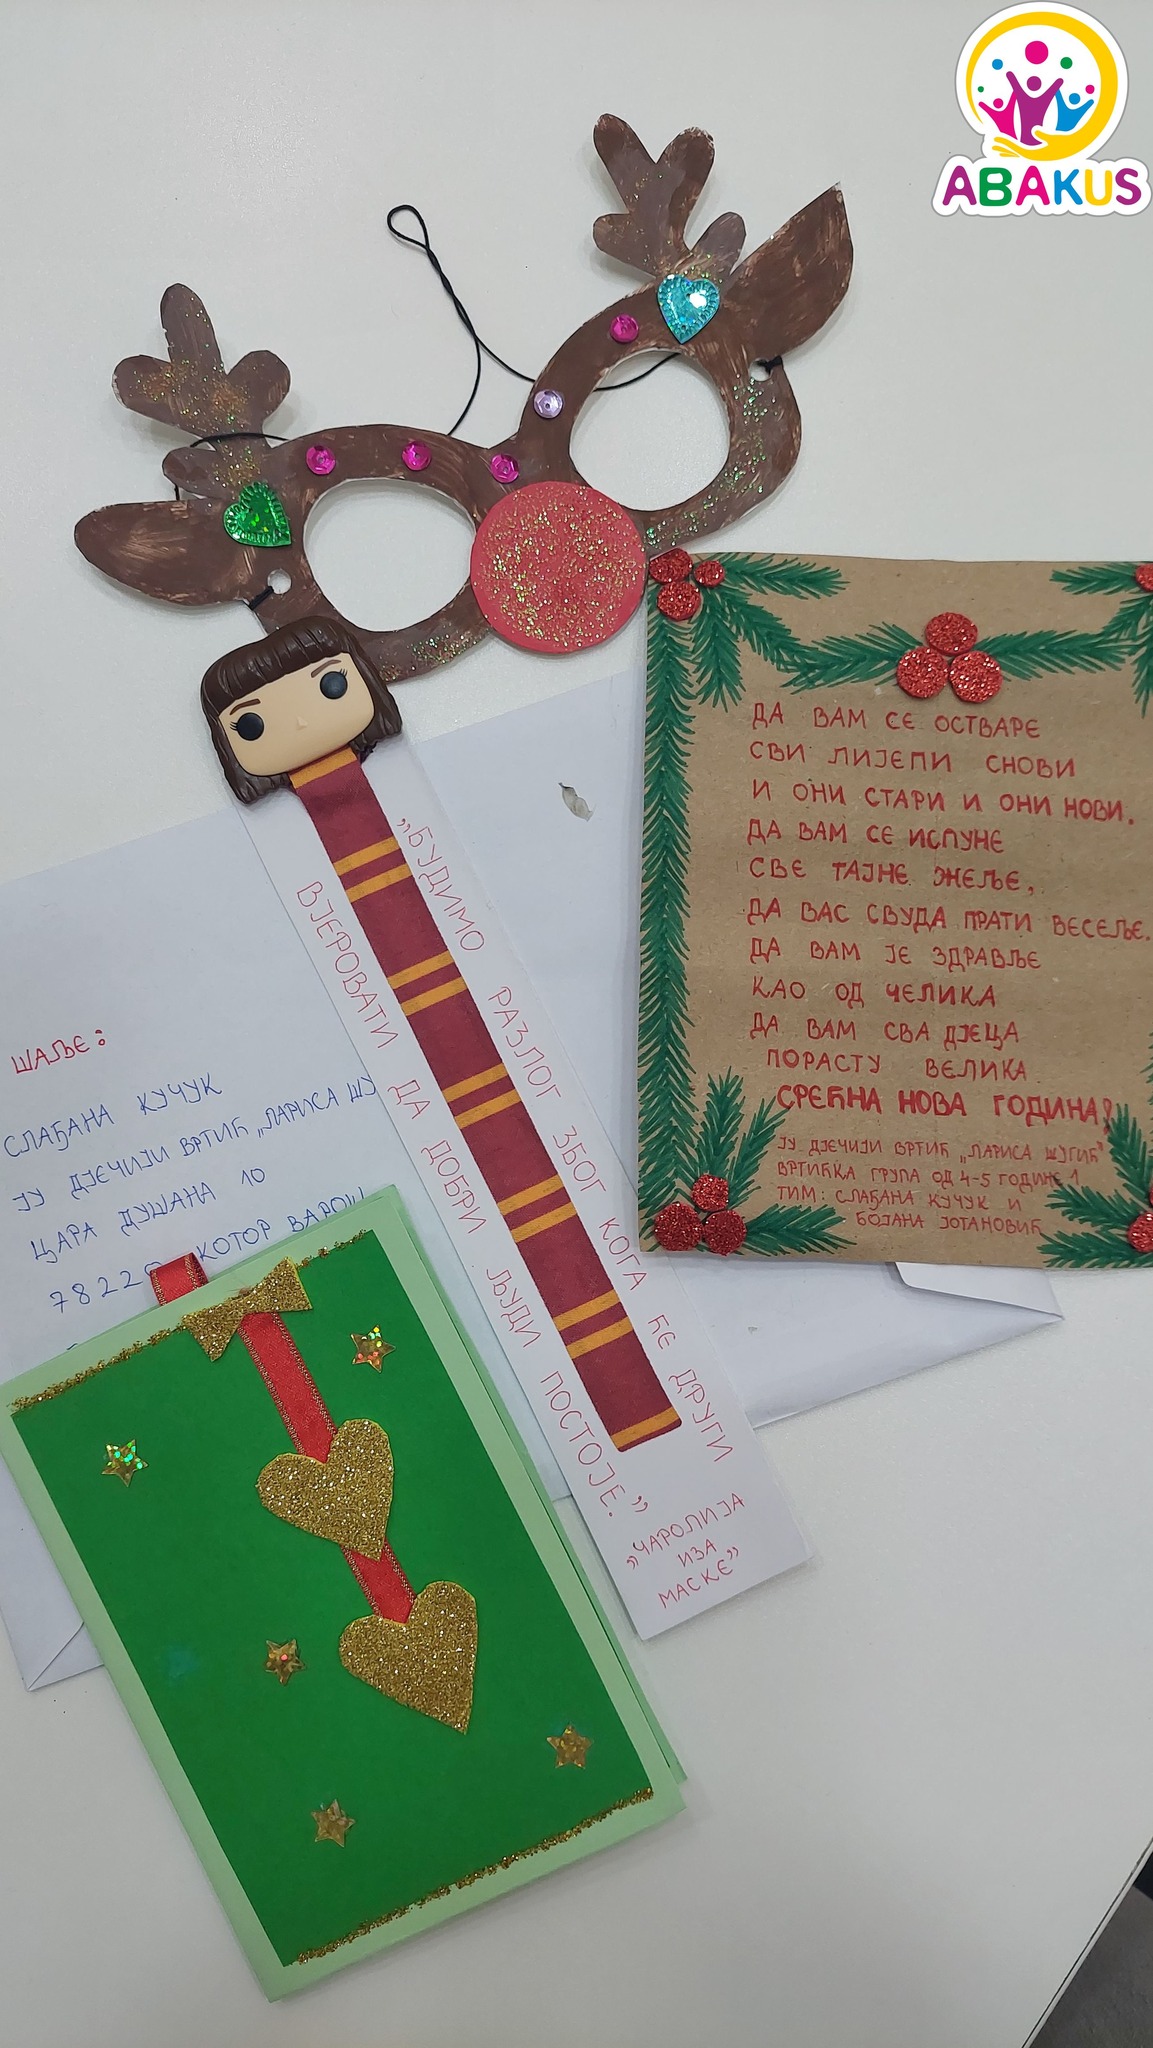 ABAKUS
ДА ВАМ СЕ ОСТВАРЕ
СВИ ЛИЈЕПИ СНОВИ
И ОНИ СТАРИ И ОНИ НОВИ.
ДА ВАМ СЕ ИСПУНЕ
СВЕ ТАЈНЕ ЖЕЉЕ,
ДА ВАС СВУДА ПРАТИ ВЕСЕЉЕ.
ДА ВАМ ЈЕ ЗДРАВЉЕ
КАО ОД ЧЕЛИКА
ДА ВАМ СВА ДЈЕЦА
ПОРАСТУ ВЕЛИКА
СРЕЋНА НОВА ГОДИНА!
ЈУ ДЈЕЧИЈИ ВРТИЋ „ЛАРИСА ШУГИЋ"
ВРТИЋКА ГРУПА ОД 4-5 ГОДИНЕ 1
ТИМ: СЛАЂАНА КУЧУК И
БОЈАНА ЈОТАНОВИЋ
„БУДИМО РАЗЛОГ ЗБОГ КОГА ЋЕ ДРУГИ
ВЈЕРОВАТИ ДА ДОБРИ ЉУДИ ПОСТОЈЕ."
„ЧАРОЛИЈА
ИЗА
МАСКЕ"
ШАЉЕ:
СЛАЂАНА КУЧУК
ЈУ ДЈЕЧИЈИ ВРТИЋ „ЛАРИСА ШУ
ЦАРА ДУШАНА 10
78220 КОТОР ВАРОШ